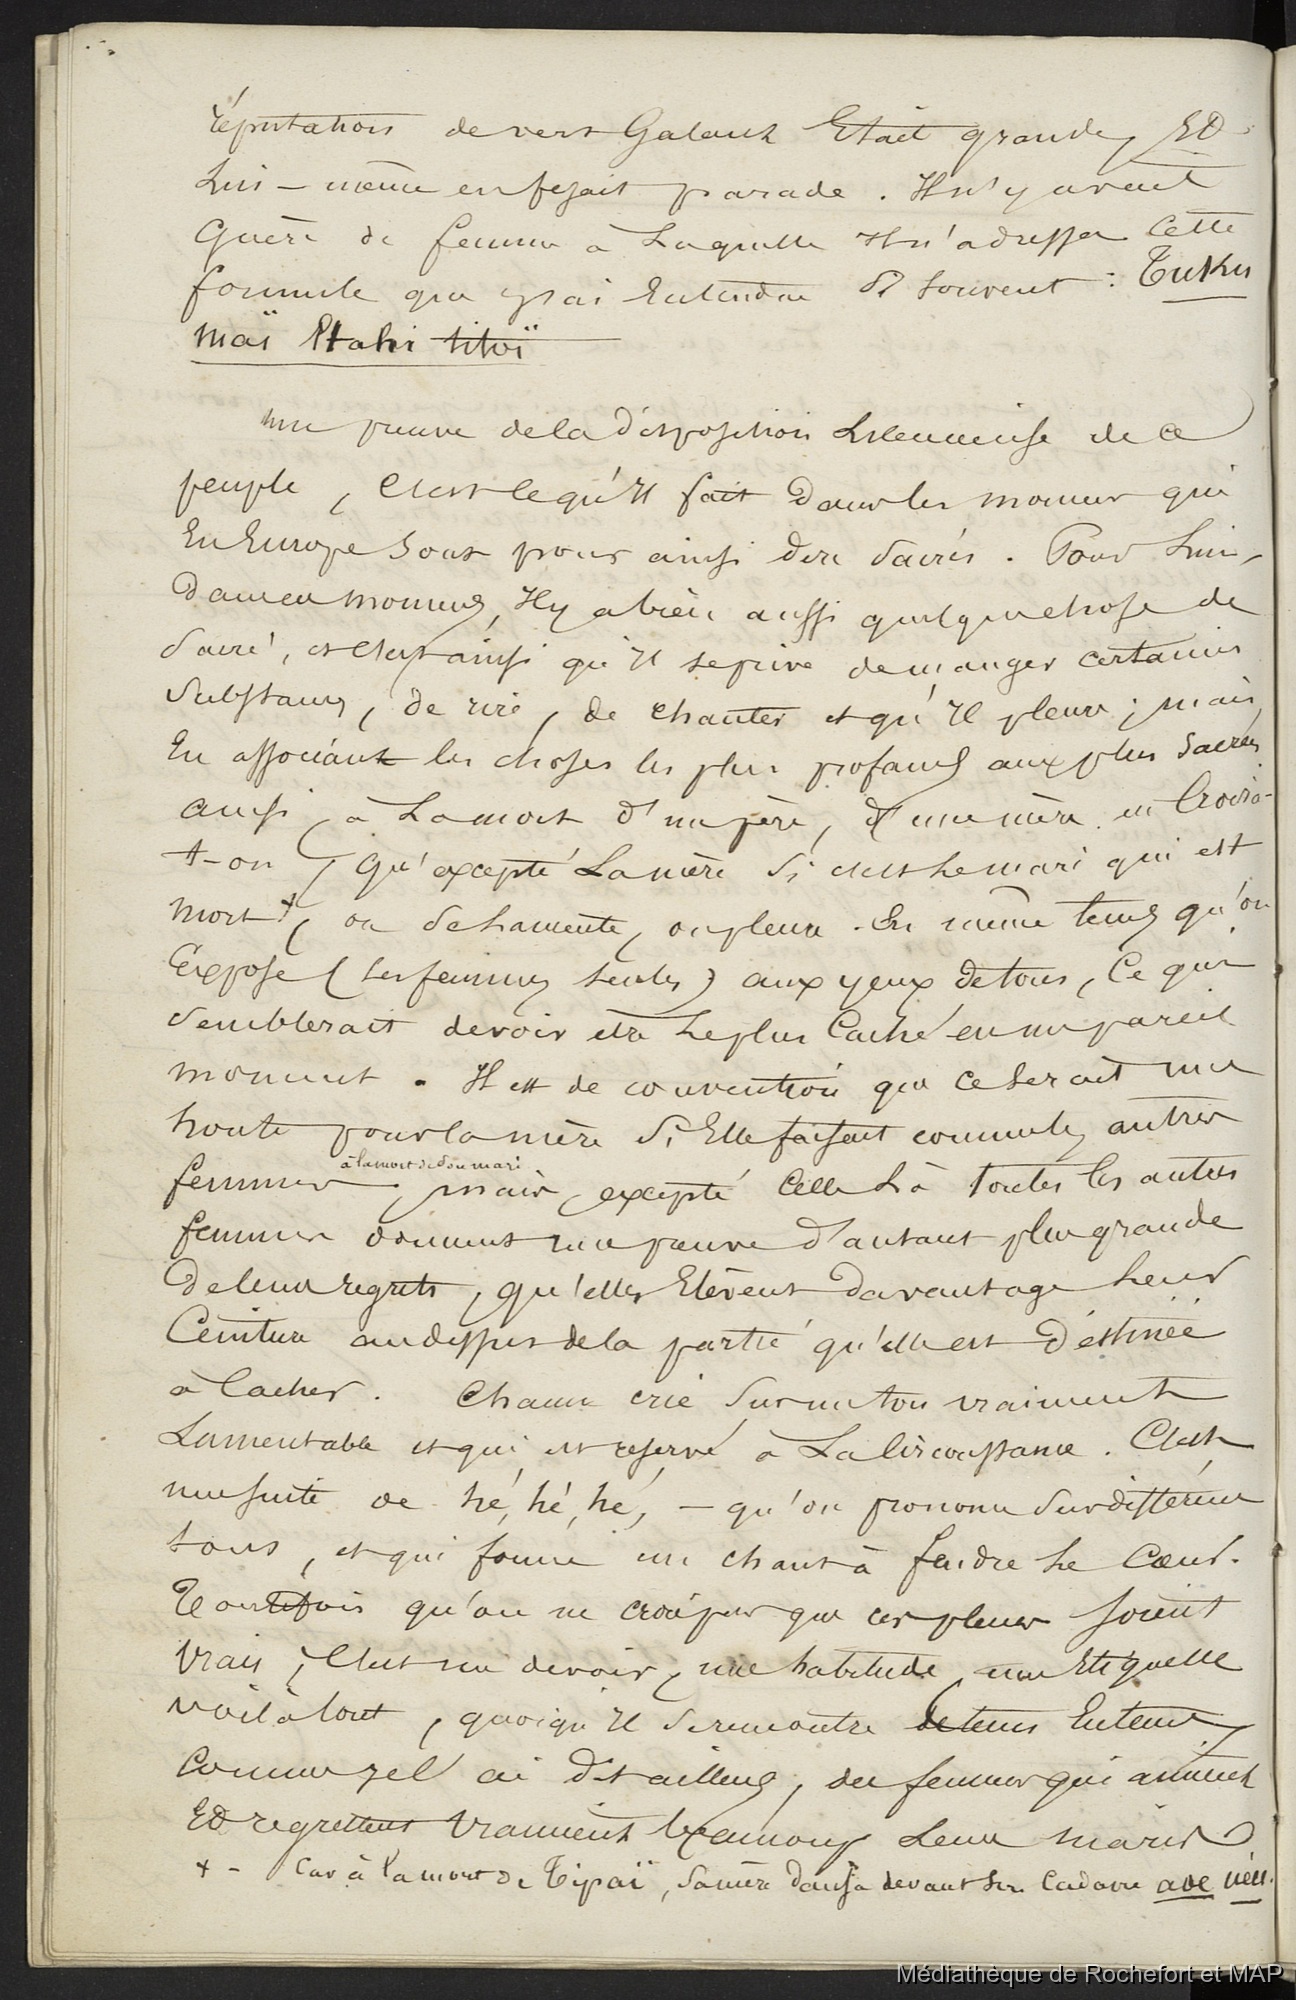 réputation de vert Galant Etait grande, Et
Lui-même en fesait parade. Il n'y avait
Guère de femme à Laquelle Il n'adressa Cette
formule que j'ai Entendue si souvent : Tukū
maï Etahi titoï

une preuve de la disposition de ce
peuple, C'est ce qu'Il fait dans les momens qui
En Europe sont pour ainsi dire sacrés. Pour Lui,
Dans ces momens, Il y a bien aussi quelque chose de
sacré, et c'est ainsi qu'Il se prive de manger certaines
substances, de rire, de chanter et qu'Il pleure ; mais
En associant les choses les plus profanes aux plus sacrées
ainsi, à La mort d'un père, d'une mère, Croira-
t-on, qu'excepté La mère si c'est Le mari qui est
mort +, on se Lamente, on pleure. En même tems qu'on
Expose (Les femmes seules) aux yeux de tous, Ce qui
semblerait devoir être Le plus Caché en un pareil
moment. Il est de convention que ce serait une
honte pour la mère si Elle faisait comme les autres
femmes à la mort de son mari, mais, excepté Celle Là toutes les autres
femmes donnent une preuve d'autant plus grande
de leurs regrets, qu'elles Elèvent davantage Leur
Ceinture au dessus de la partie qu'elle est déstinée
à Cacher. Chacun crie sur un ton vraiment
Lamentable et qui est reservé à La Circonstance. C'est
une suite de hé, hé, hé, - qu'on prononce sur différens
tons, et qui forme un chant à fendre Le Cœur.
Toutefois qu'on ne croie pas que ces pleurs soient
Vrais ; C'est un devoir, une habitude, une Etiquette
voilà tout, quoiqu'Il se rencontre de tems En tems,
Comme je l'ai dit ailleurs, des femmes qui aiment
Et regrettent Vraiment beaucoup Leurs maris.
+ - Car à la mort de Tipaï, sa mère dansa devant son Cadavre
Médiathèque de Rochefort et MAP